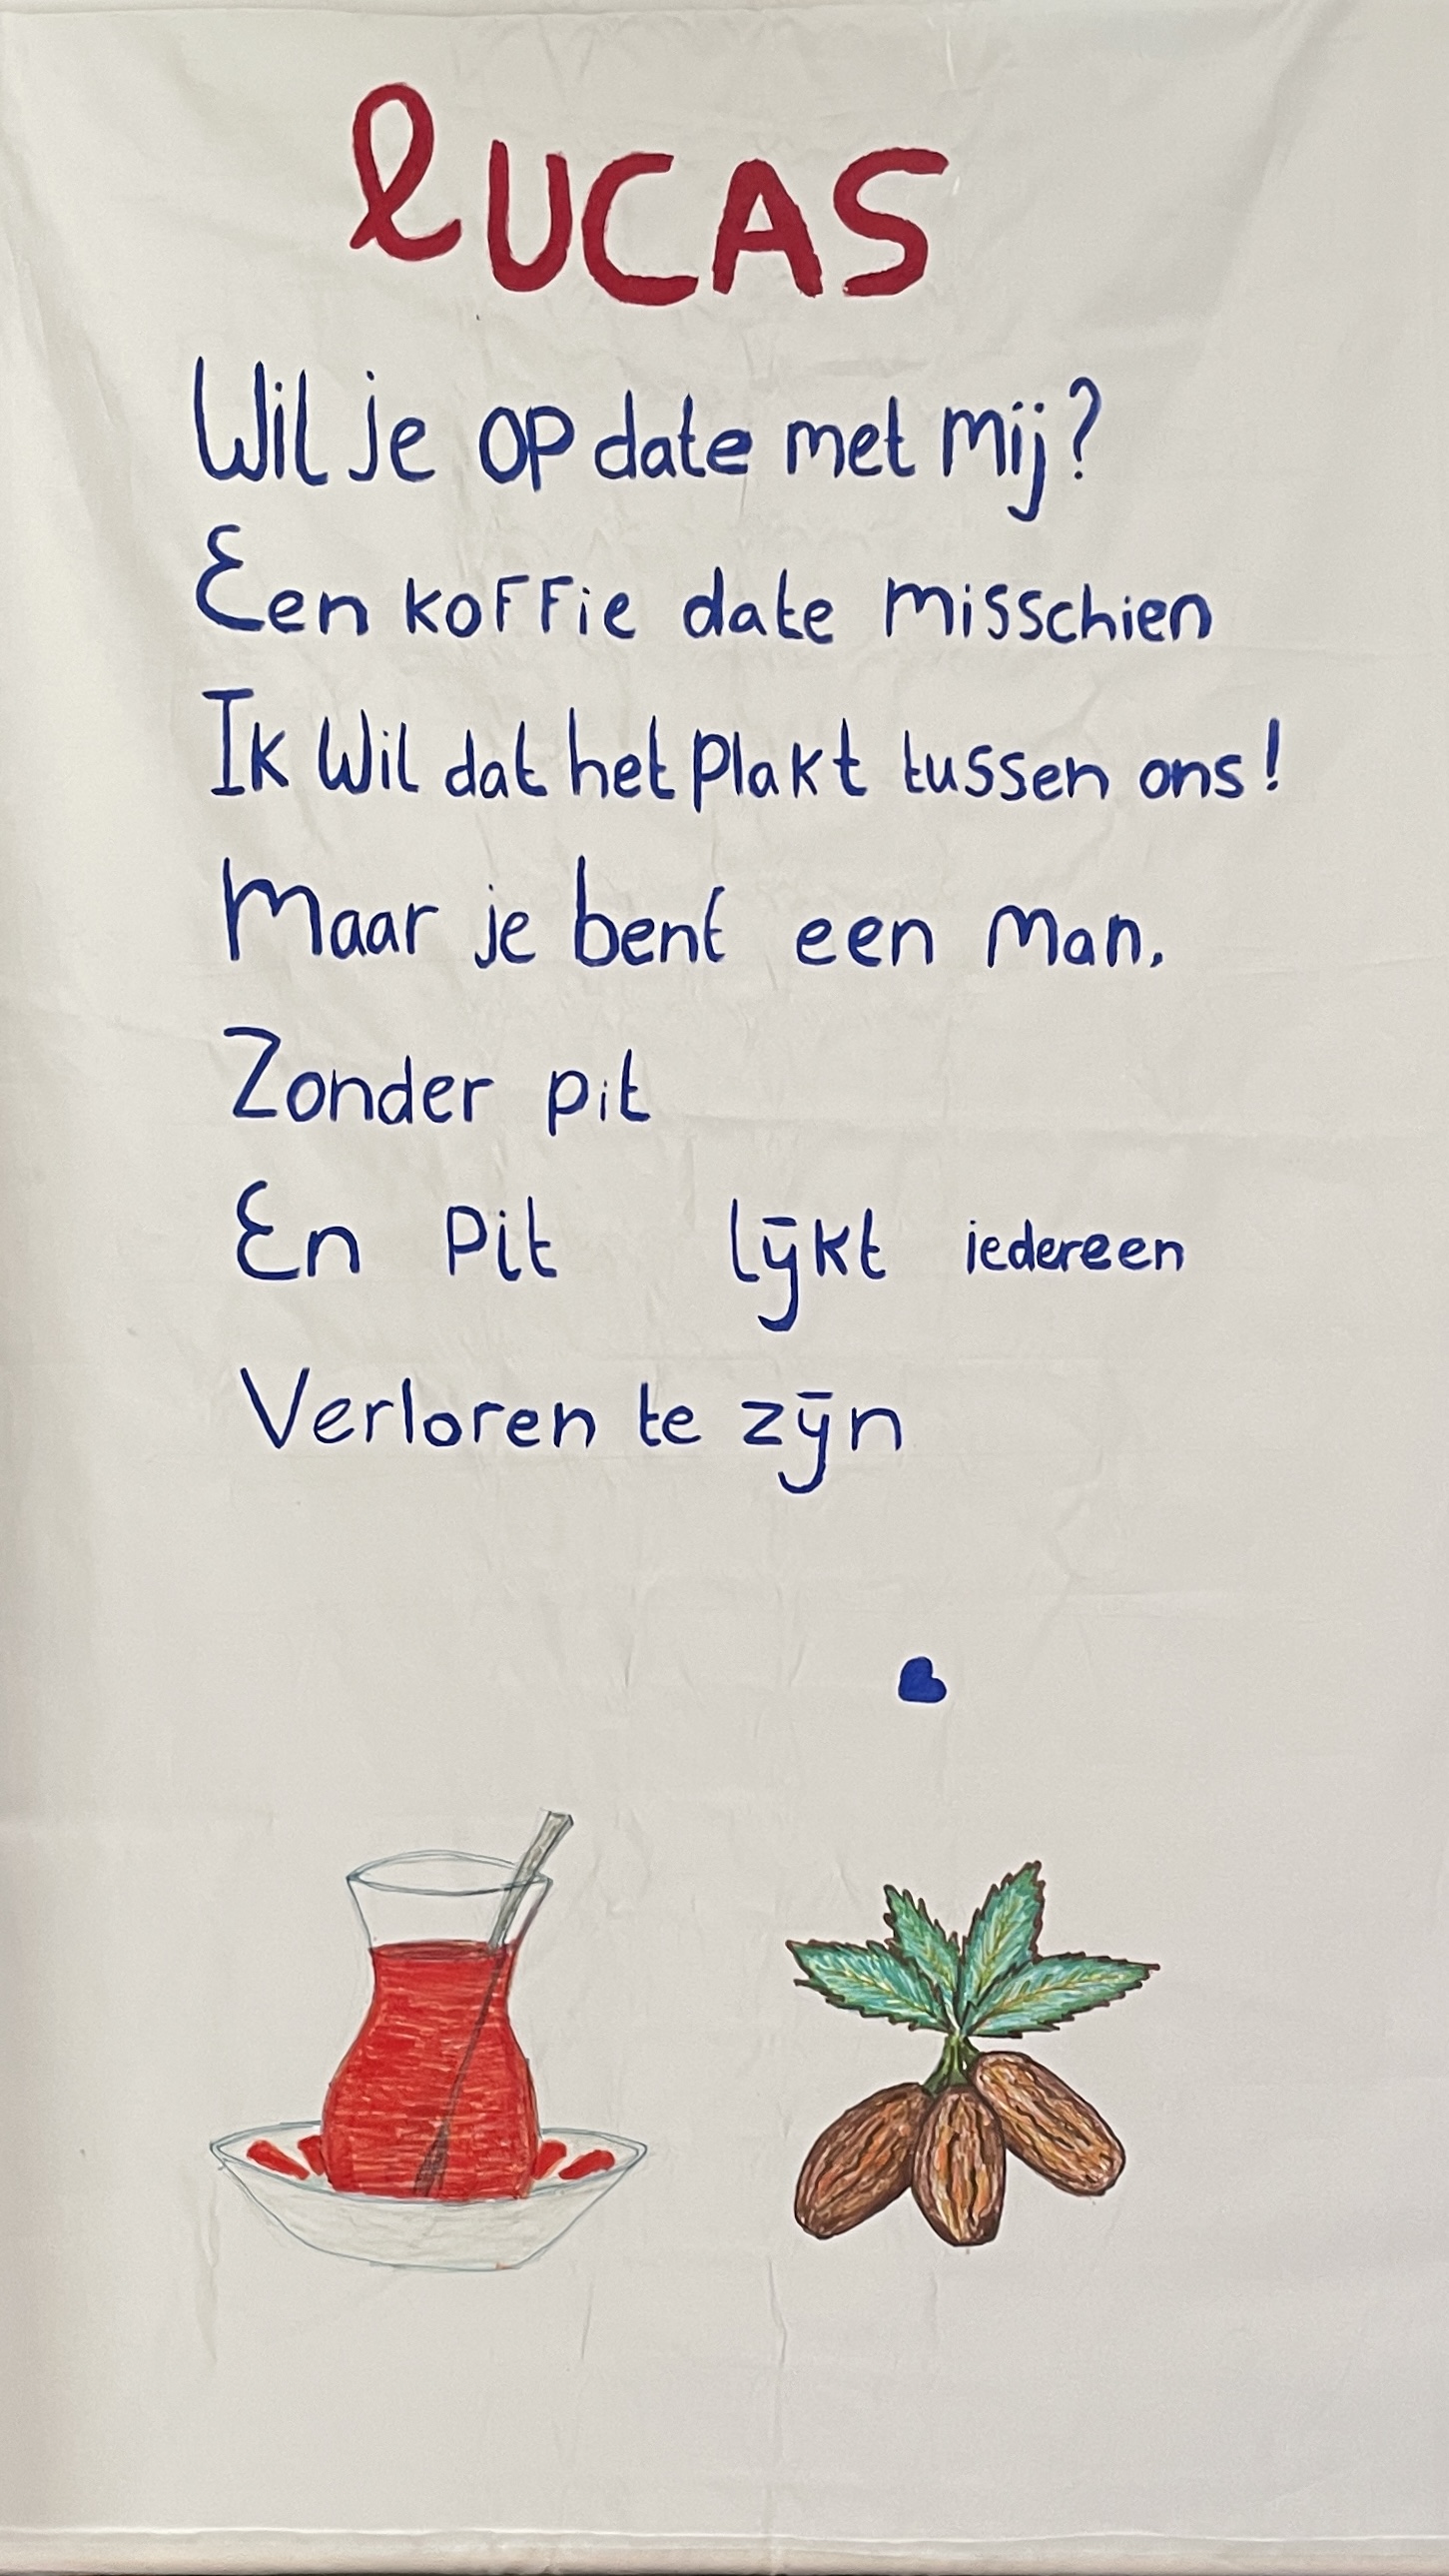 lUCAS
Wil je op date met mij?
Een koffie date misschien
Ik wil dat het plakt tussen ons!
Maar je bent een man.
Zonder pit
En pit lijkt iedereen
Verloren te zijn